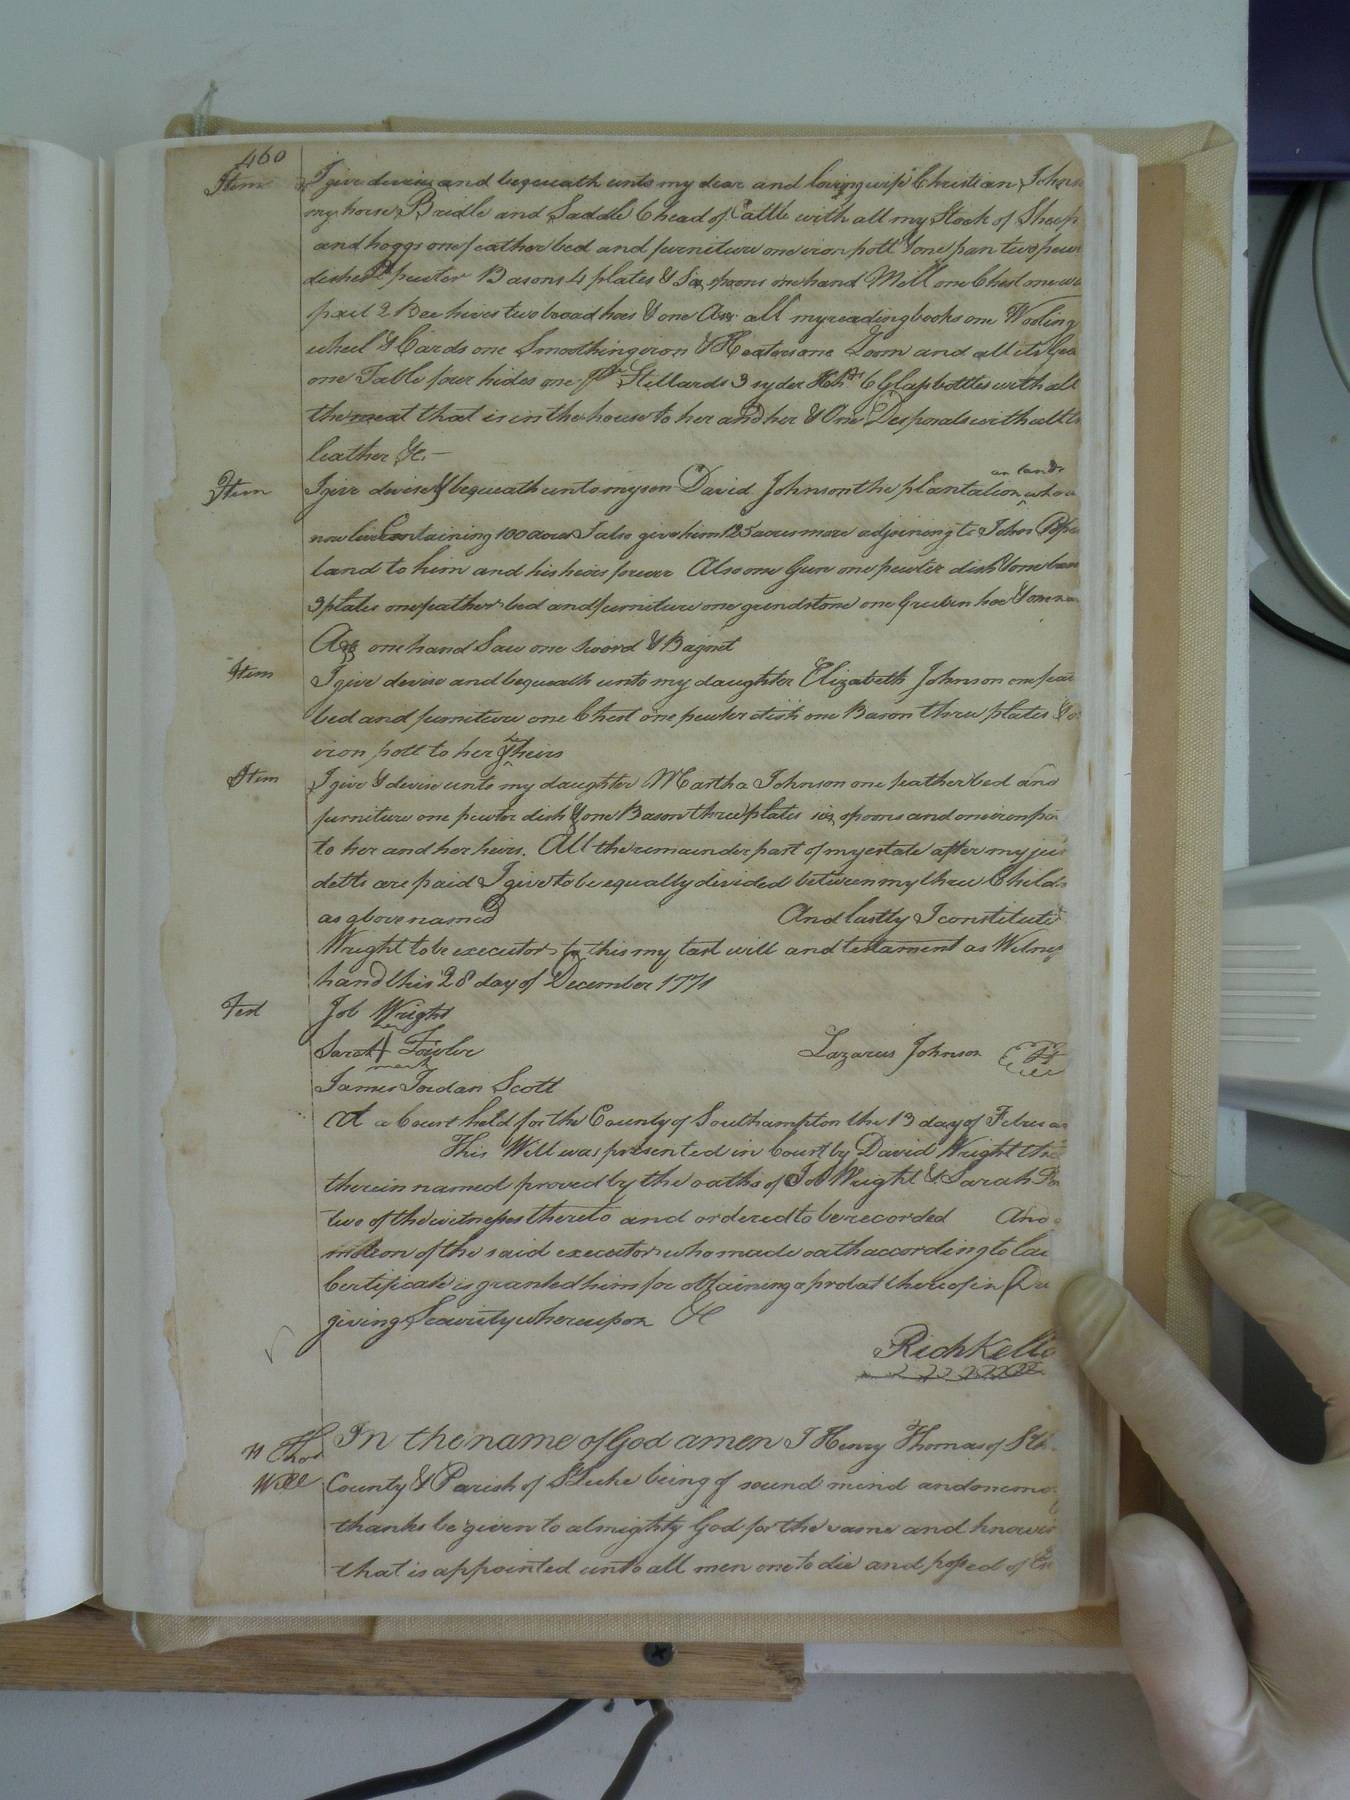 460
Item I give devise and bequeath unto my dear and loving wife Christian Johns
my horse Bridle and Saddle 6 head of Cattle with all my Stock of Sheep
and hoggs one feather bed and furniture one iron pott & one pan two pew
dishes pewter Basons 4 plates & Six spoons one hand Mill one Chest one
pail 2 Bee hives two broad hoes & one Axx all my reading books one Wooling
wheel & Cards one Smoothing iron & Heaters one Loom and all its Gea
one Table four hides one pr Stillards 3 syder 6 Glass bottles with all
the meat that is in the house to her and her & One with all
leather &c.
Item I give devise & bequeath unto my son David Johnson the plantation an land
now live Containing 100 acres I also give him 125 acres more adjoining to John
land to him and his heirs forever Also one Gun one pewter dish & one
3 plates one feather bed and furniture one grindstone one Gruben hoe &
Axx one hand Saw one Sword & Bagnet
Item I give devise and bequeath unto my daughter Elizabeth Johnson one fea
bed and furniture one Chest one pewter dish one Bason three plates &
iron pott to her & her heirs
Item I give & devise unto my daughter Martha Johnson one feather bed and
furniture one pewter dish & one Bason three plates six spoons and one iron po
to her and her heirs. All the remainder part of my estate after my jus
detts are paid I give to be equally divided between my three Child
as above named And lastly I constitute
Wright to be executor to this my last will and testament as Witness
hand this 28 day of December 1771
Test Job Wright
her
Sarah Fowler Lazarus Johnson
mark
James Jordan Scott
At a Court held for the County of Southampton the 13 day of Februa
This Will was presented in Court by David Wright the
therein named proved by the oaths of Job Wright & Sarah Fo
two of the witnesses thereto and ordered to be recorded And
motion of the said executor who made oath according to law
Certificate is granted him for obtaining a probat thereof in Due
giving Security whereupon &c
Rich Kello
H Tho In the name of God amen I Henry Thomas of
Will County & Parish of St Luke being of sound mind and memo
thanks be given to almighty God for the same and knowi
that is appointed unto all men one to die and possed of